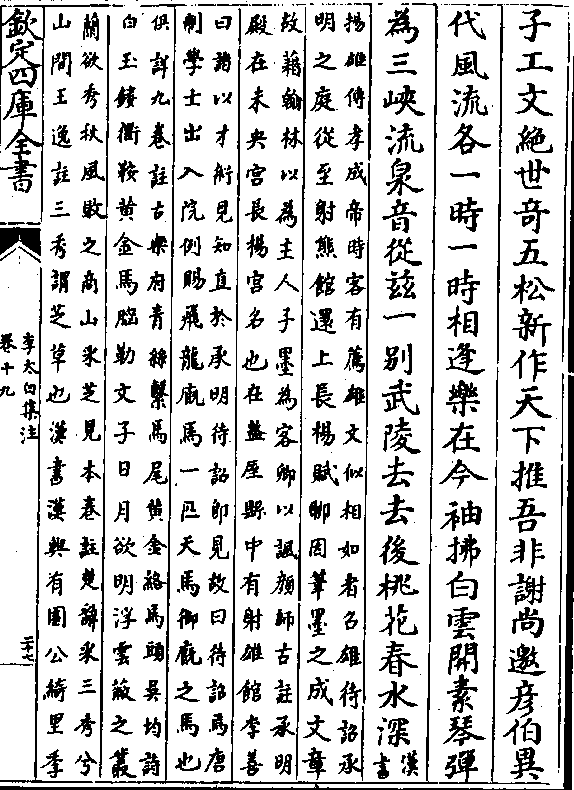 子工文絶世奇五松新作天下推吾非謝尚邀彦伯異
代風流各一時一時相逢樂在今袖拂白雲開素琴彈
為三峽流泉音從兹一别武陵去去後桃花春水深漢書
揚雄傳孝成帝時客有薦雄文似相如者召雄待詔承
明之庭從至射熊館還上長楊賦聊因筆墨之成文章
故藉翰林以為主人子墨為客卿以諷顔師古註承明
殿在未央宫長楊宫名也在盩厔縣中有射雄館李善
曰諸以才術見知直於承明待詔即見故曰待詔焉唐
制學士出入院例賜飛龍廐馬一匹天馬御廐之馬也
俱詳九卷註古樂府青絲繫馬尾黄金絡馬頭吳均詩
白玉鏤衢鞍黄金馬腦勒文子日月欲明浮雲蔽之叢
蘭欲秀秋風敗之商山采芝見本卷註楚辭采三秀兮
山間王逸註三秀謂芝草也漢書漢興有園公綺里季
欽定四庫全書
李太白集注
卷十九
二十七